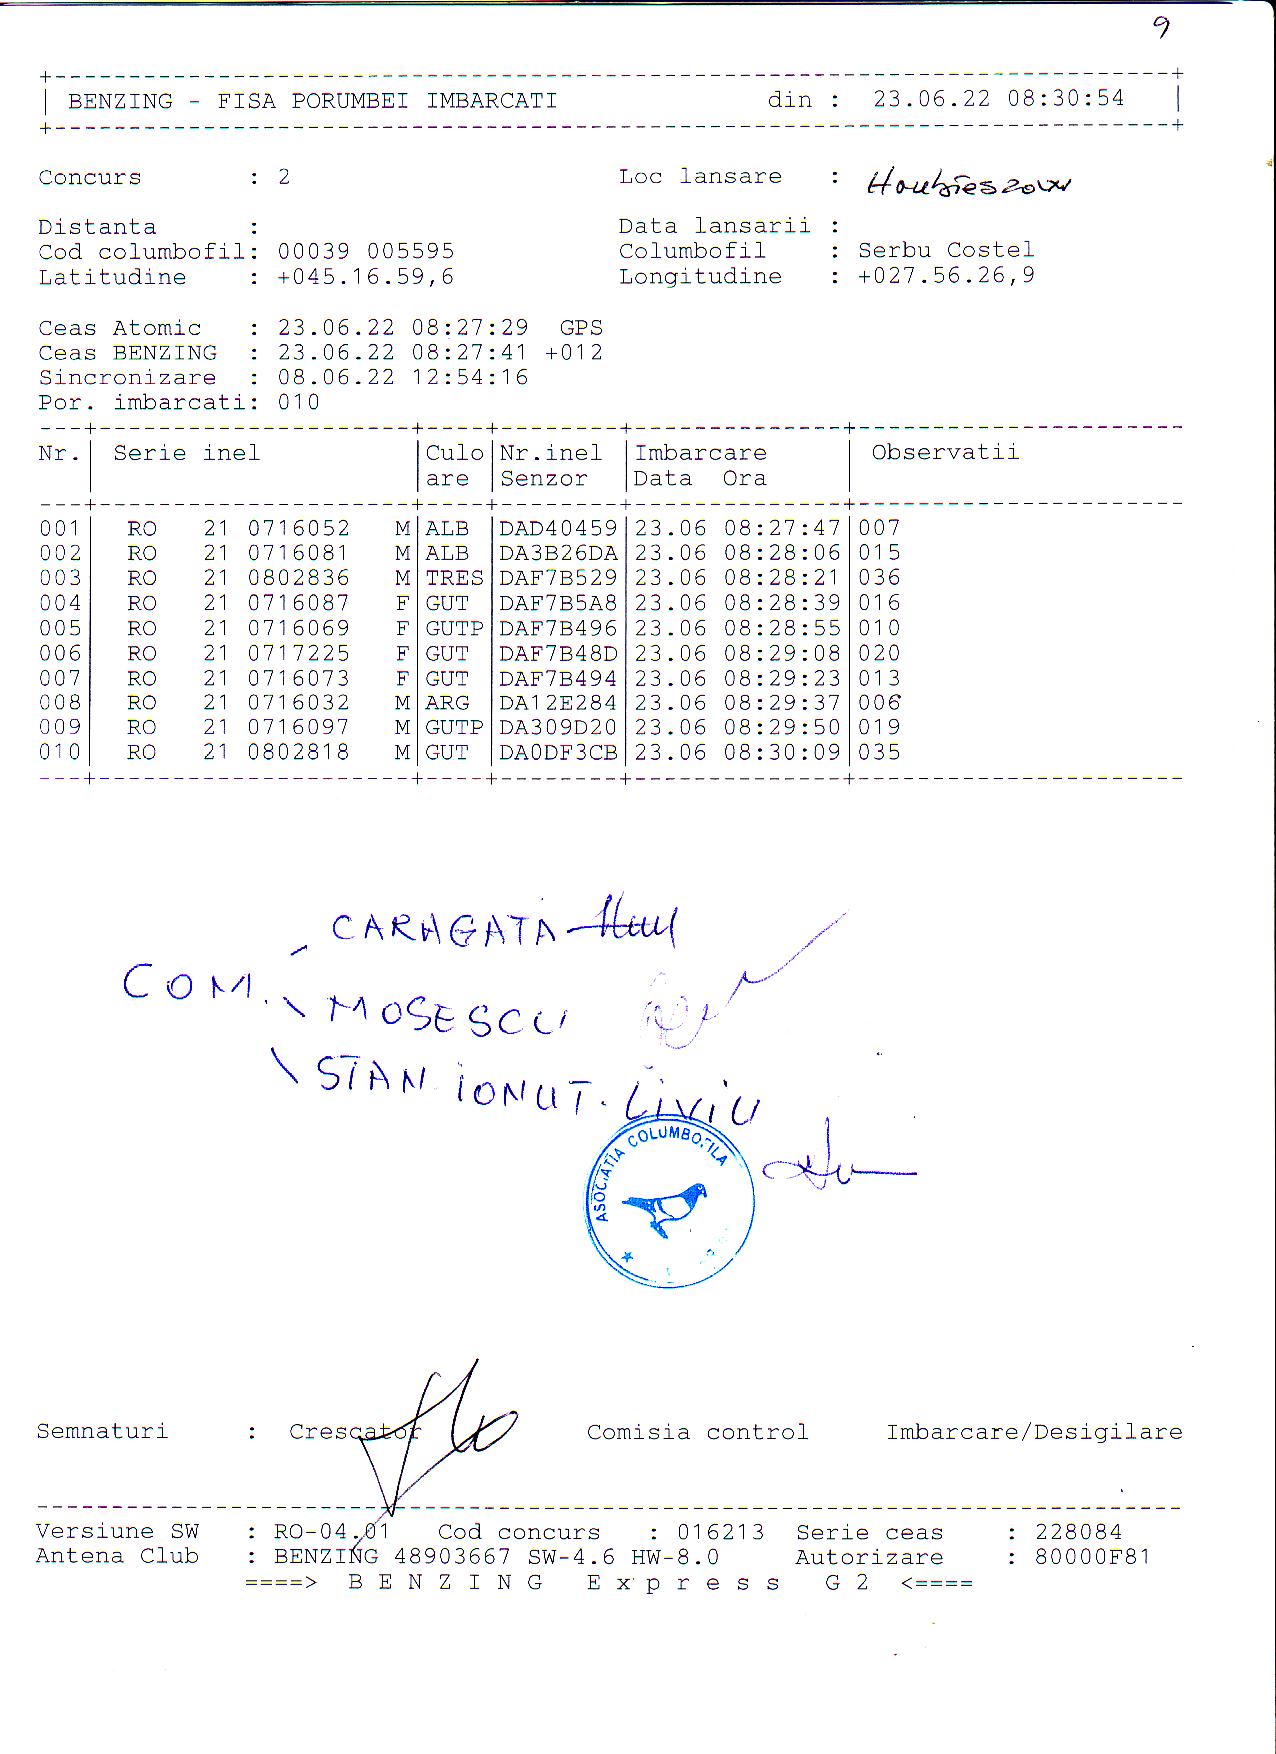 9
BENZING - FISA PORUMBEI IMBARCATI din : 23.06.22 08:30:54
Concurs : 2 Loc lansare :
Distanta : Data lansarii :
Cod columbofil: 00039 005595 Columbofil : Serbu Costel
Latitudine : +045.16.59,6 Longitudine : +027.56.26,9
Ceas Atomic : 23.06.22 08:27:29 GPS
Ceas BENZING : 23.06.22 08:27:41 +012
Sincronizare : 08.06.22 12:54:16
Por. imbarcati: 010
Nr. Serie inel Culo Nr.inel Imbarcare Observatii
are Senzor Data Ora
001 RO 21 0716052 M ALB DAD40459 23.06 08:27:47 007
002 RO 21 0716081 M ALB DA3B26DA 23.06 08:28:06 015
003 RO 21 0802836 M TRES DAF7B529 23.06 08:28:21 036
004 RO 21 0716087 F GUT DAF7B5A8 23.06 08:28:39 016
005 RO 21 0716069 F GUTP DAF7B496 23.06 08:28:55 010
006 RO 21 0717225 F GUT DAF7B48D 23.06 08:29:08 020
007 RO 21 0716073 F GUT DAF7B494 23.06 08:29:23 013
008 RO 21 0716032 M ARG DA12E284 23.06 08:29:37 006
009 RO 21 0716097 M GUTP DA309D20 23.06 08:29:50 019
010 RO 21 0802818 M GUT DA0DF3CB 23.06 08:30:09 035
CARAGATA
COM.
MOSESCU
STAN IONUT. LIVIU
ASOCIATIA COLUMBOFILA
Semnaturi : Crescator Comisia control Imbarcare/Desigilare
Versiune SW : RO-04.01 Cod concurs : 016213 Serie ceas : 228084
Antena Club : BENZING 48903667 SW-4.6 HW-8.0 Autorizare : 80000F81
====> B E N Z I N G E x p r e s s G 2 <====